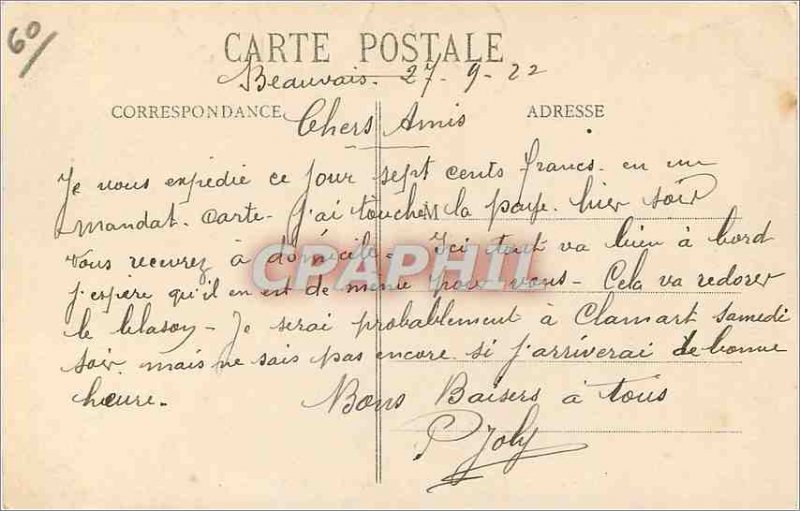 60/
CARTE POSTALE
Beauvais. 27-9-22
CORRESPONDANCE
ADRESSE
Chers Amis
Je vous expédie ce jour sept cents francs en un
mandat-carte- J'ai touché la paye hier soir
vous recevrez à domicile- Ici tout va bien à bord
j'espère qu'il en est de même pour vous- Cela va redorer
le blason- Je serai probablement à Clamart samedi
soir mais ne sais pas encore si j'arriverai de bonne
heure-
Bons Baisers à tous
P Joly
CPAPHIL